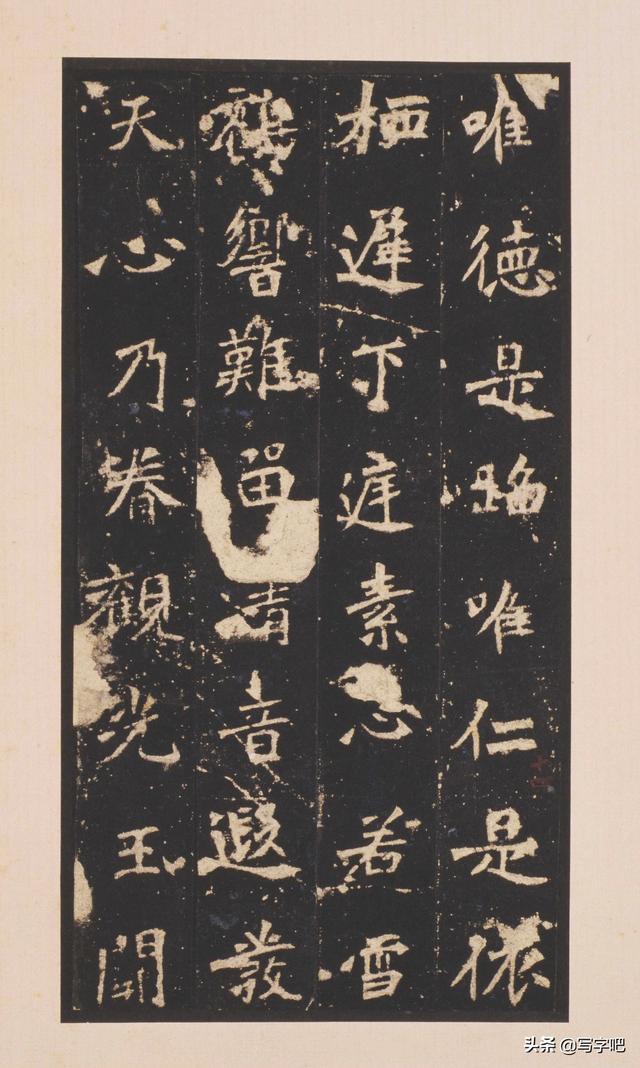 唯德是蹈唯仁是依
栖遲下庭素心若雪
鶴響難留清音遐發
天心乃眷觀光玉闕
头条 @写字吧